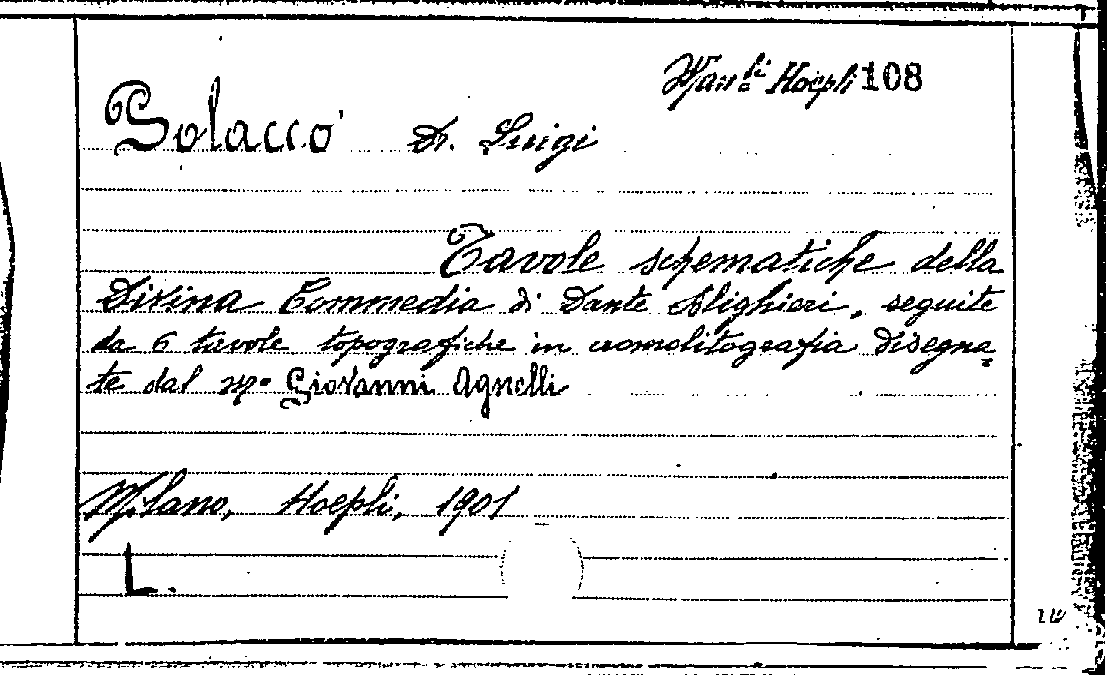 Man.li Hoepli 108
Polacco Dr. Luigi
Tavole schematiche della
Divina Commedia di Dante Alighieri, seguite
da 6 tavole topografiche in cromolitografia disegna=
te dal m.o Giovanni Agnelli
Milano, Hoepli, 1901
L.